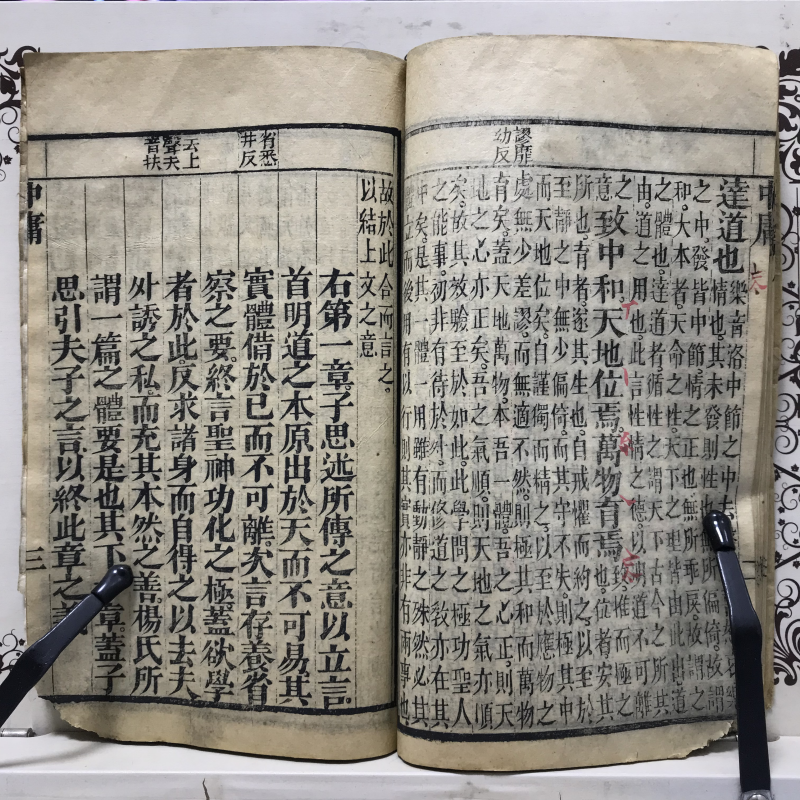 中庸
謬靡
幼反
達道也
樂音洛中節之中去
情也其未發則性也所偏倚故謂
之中。發皆中節。情之正也無所乖戾。故謂之
和。大本者。天命之性。天下之理皆由此出道
之體也。達道者。循性之謂天下古今之所共
由。道之用也。此言性情之德。以明道不可離
之
意
致中和天地位焉。萬物育焉。
致推而極之
也。位者安其
所也。育者。遂其生也。自戒懼而約之。以至於
至靜之中無少偏倚。而其守不失。則極其中
而天地位矣。自謹獨而精之。以至於應物之
處。無少差謬。而無適不然。則極其和而萬物
育矣。蓋天地萬物。本吾一體。吾之心正。則天
地之心亦正矣。吾之氣順。則天地之氣亦順
矣。故其效驗至於如此。此學問之極功。聖人
之能事。初非有待於外。而修道之教亦在其
中矣。是其一體一用。雖有動靜之殊。然必其
體立而後用有以行。則其實亦非有兩事也
省悉
井反
去上
聲夫
音扶
故於此合而言之。
以結上文之意
右第一章。子思述所傳之意以立言
首明道之本原出於天而不可易。其
實體備於己而不可離。次言存養省
察之要。終言聖神功化之極。蓋欲學
者於此。反求諸身而自得之以去夫
外誘之私。而充其本然之善。楊氏所
謂一篇之體要是也。其下章蓋子
思引夫子之言以終此章之義
中庸
三